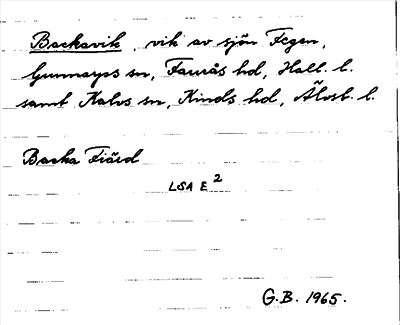 Backavik, vik av sjön Fegen,
Gunnarps sn, Faurås hd, Hall. l.
samt Kalvs sn, Kinds hd, Älvsb. l.
Backa Fiärd
LSA E2
G.B. 1965.